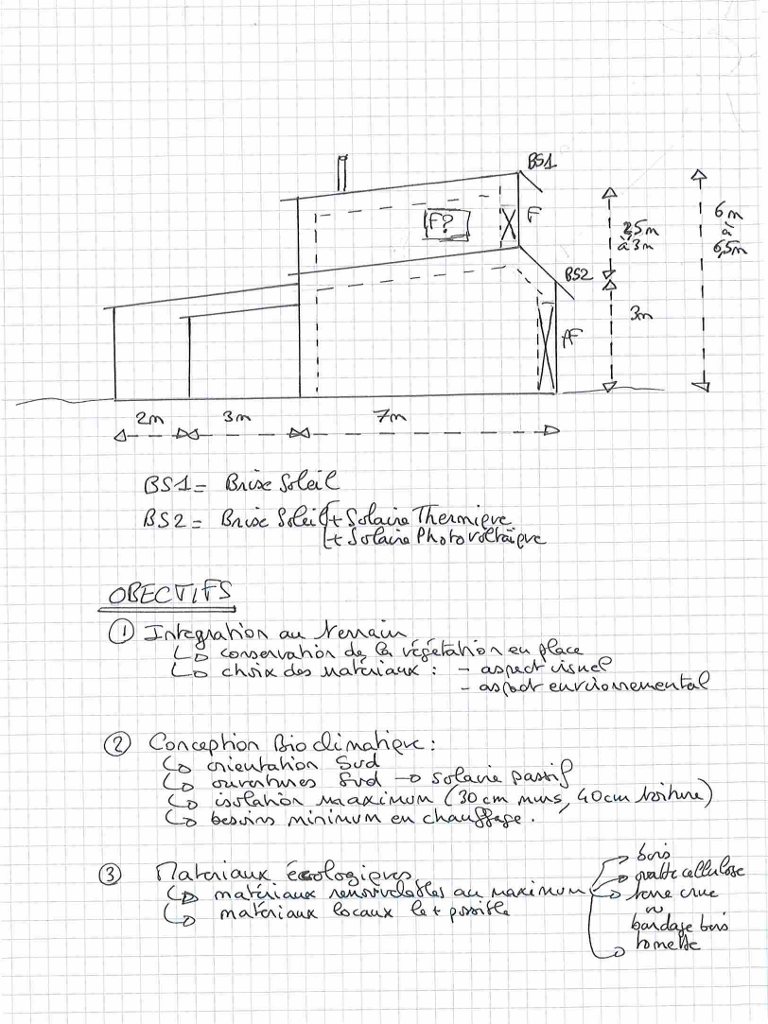 BS1
F?
F
2,5m
à 3m
6m
à
6,5m
BS2
3m
AF
2m
3m
7m
BS1 = Brise Soleil
BS2 = Brise Soleil + Solaire Thermique
+ Solaire Photovoltaïque
OBECTIFS
1 Integration au terrain
conservation de la végétation en place
choix des matériaux : - aspect visuel
- aspect environnemental
2 Conception Bioclimatique :
orientation Sud
ouvertures Sud → solaire passif
isolation maximum (30 cm murs, 40cm toiture)
besoins minimum en chauffage.
3 Materiaux écologiques
matériaux renouvelables au maximum
matériaux locaux le + possible
bois
ouatte cellulose
terre crue
bardage bois
tomette